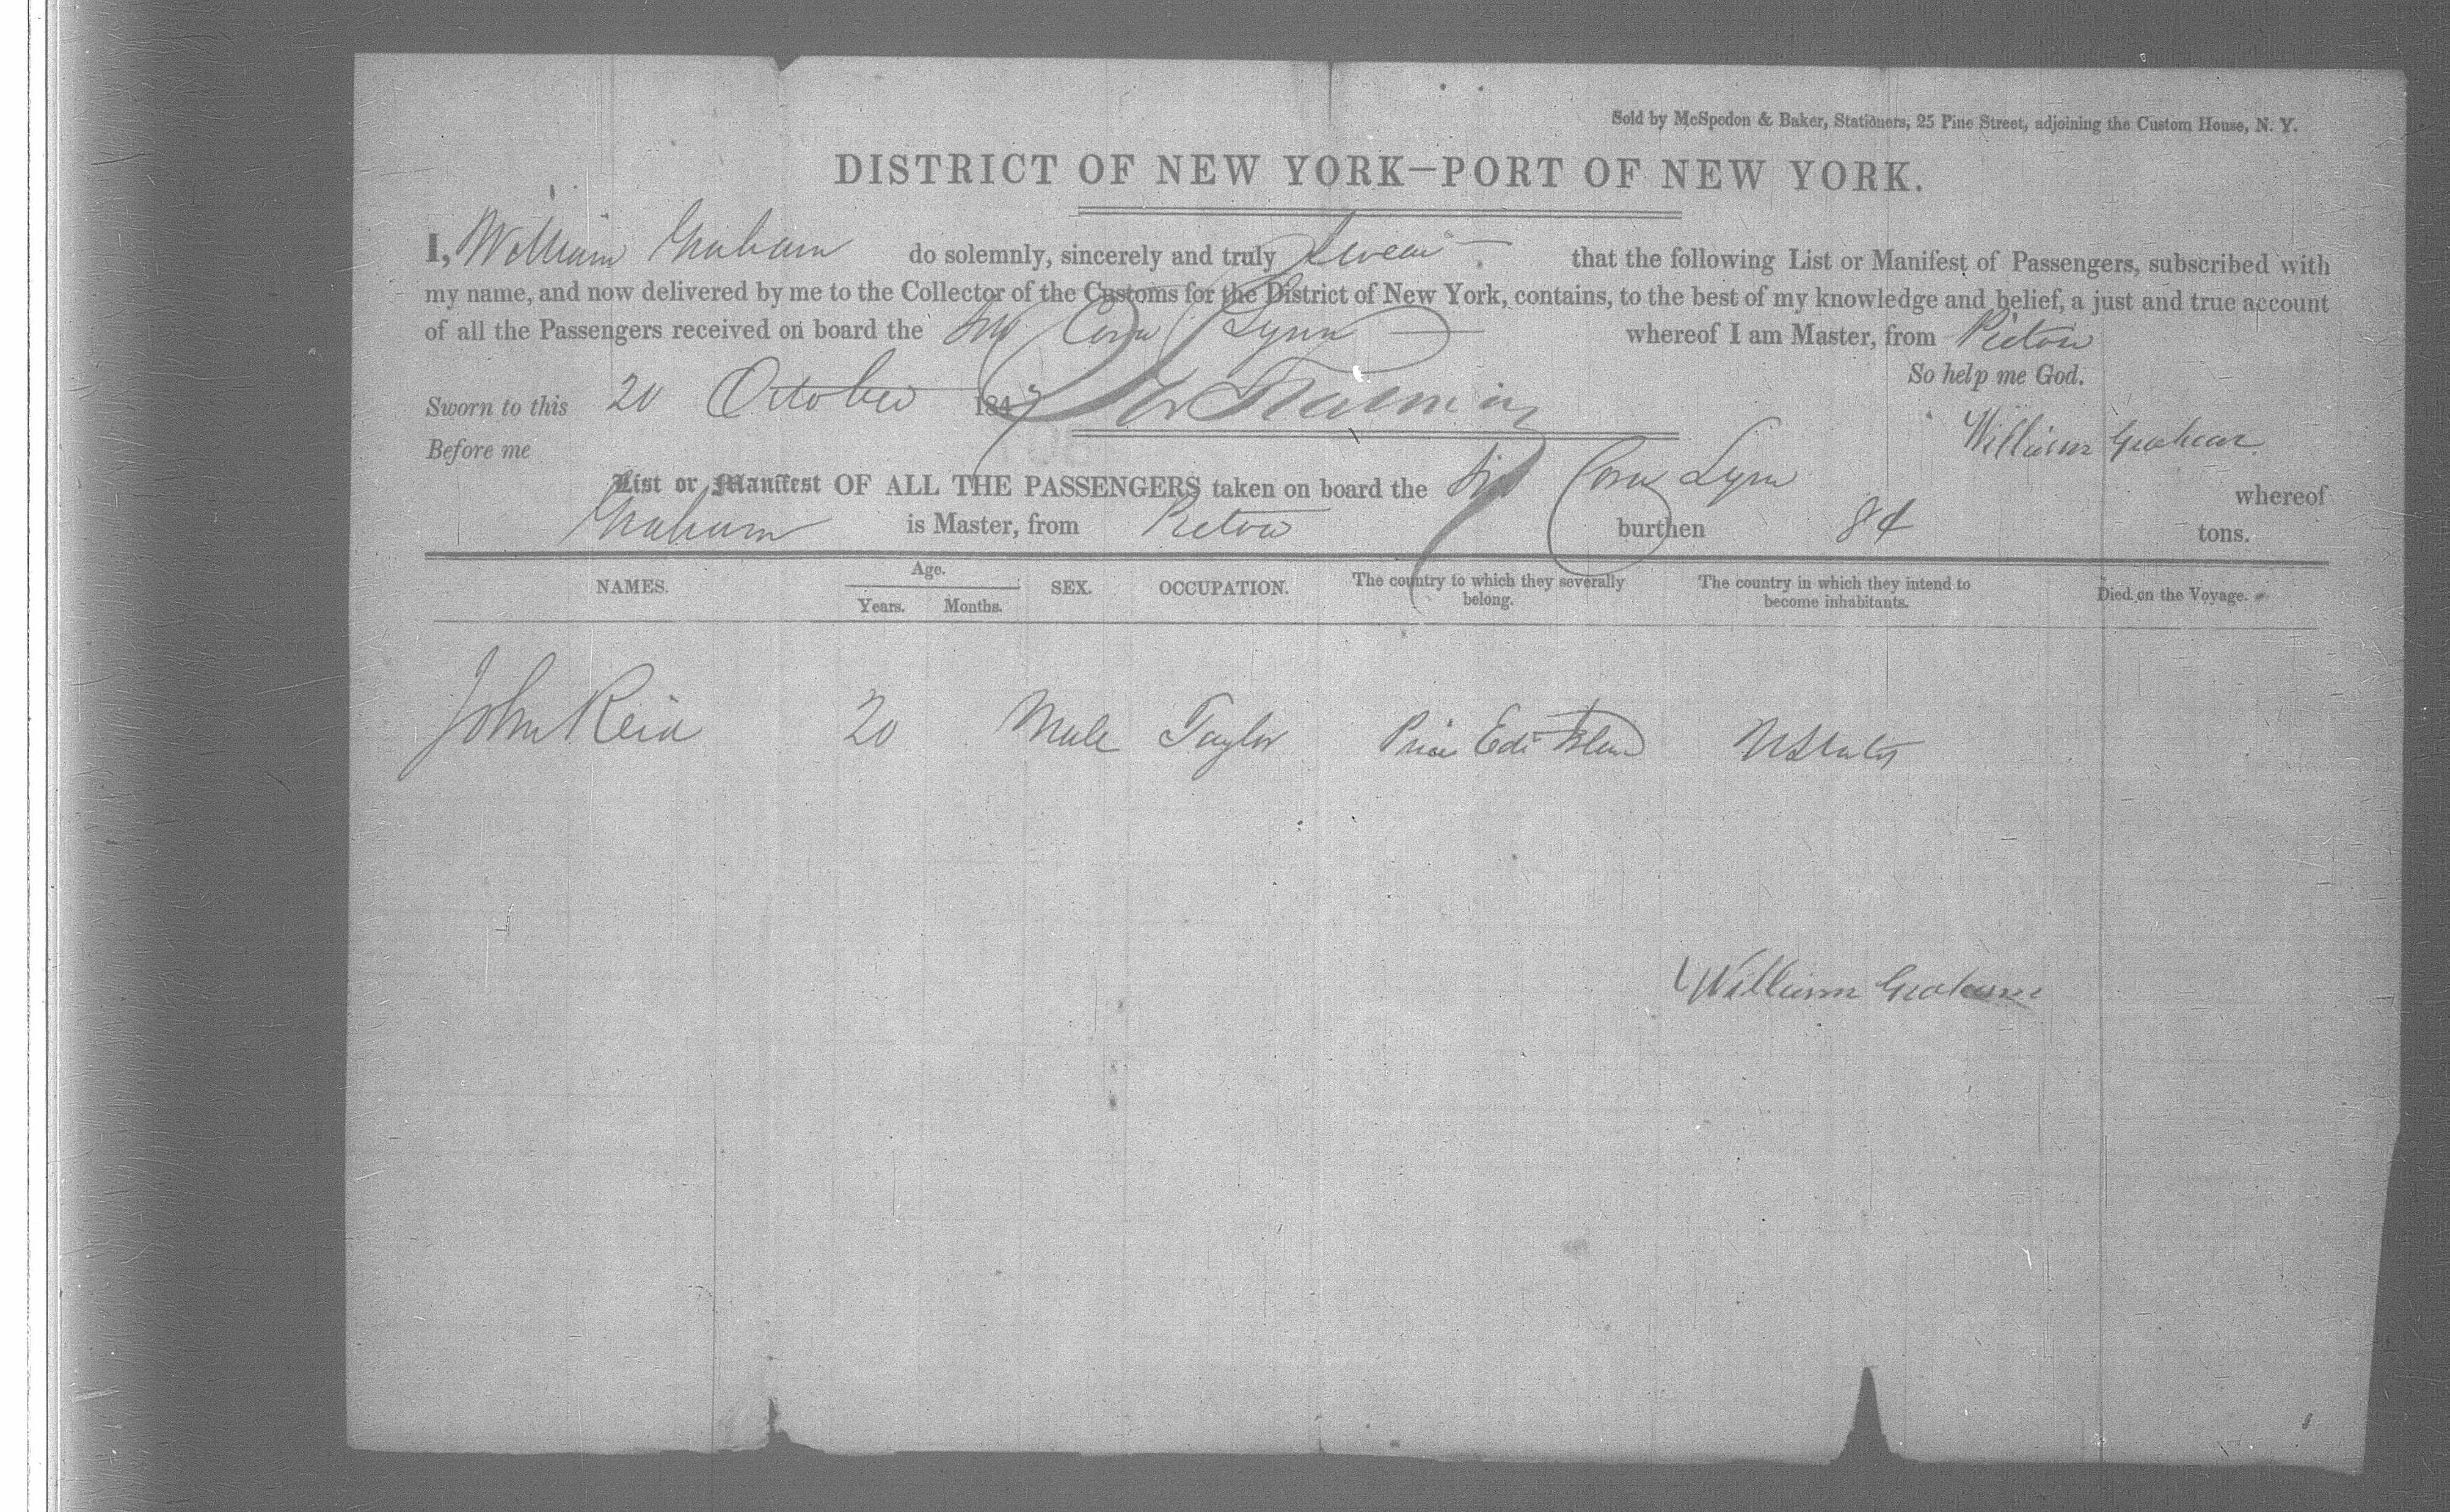 Sold by McSpedon & Baker, Stationers, 25 Pine Street, adjoining the Custom House, N. Y.
DISTRICT OF NEW YORK—PORT OF NEW YORK.
I, William Graham do solemnly, sincerely and truly Swear that the following List or Manifest of Passengers, subscribed with
my name, and now delivered by me to the Collector of the Customs for the District of New York, contains, to the best of my knowledge and belief, a just and true account
of all the Passengers received on board the Lynn whereof I am Master, from Pictou
So help me God.
Sworn to this 20 October 184
William Graham
Before me
List or Manifest OF ALL THE PASSENGERS taken on board the Lynn whereof
Graham is Master, from Pictou burthen 84 tons.
NAMES. Age. Years. Months. SEX. OCCUPATION. The country to which they severally belong. The country in which they intend to become inhabitants. Died on the Voyage.
John Reid 20 Male Taylor Prince Ed Island U States
William Graham